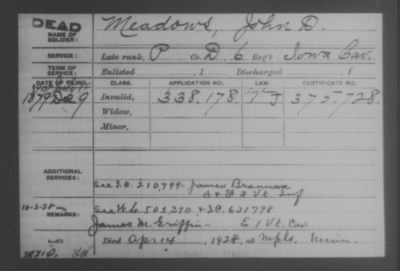 DEAD
NAME OF SOLDIER: Meadows, John D.
SERVICE: Late rank, P Co. D, 6 Reg't Iowa Cav.
TERM OF SERVICE: Enlisted 1 Discharged 1
DATE OF FILING. CLASS. APPLICATION NO. LAW. CERTIFICATE NO.
1879 Dec 9 Invalid, 338.178. 375.728.
Widow,
Minor,
ADDITIONAL SERVICES:
See I.O. 210,799 James Brannax
3 Vt. Inf
10-3-38
REMARKS: See W.C. 502,290 & I.C. 621798
James M. Griffin - E 1 Vt Cav
Died Apr. 14, 1928, at Mpls, Minn.